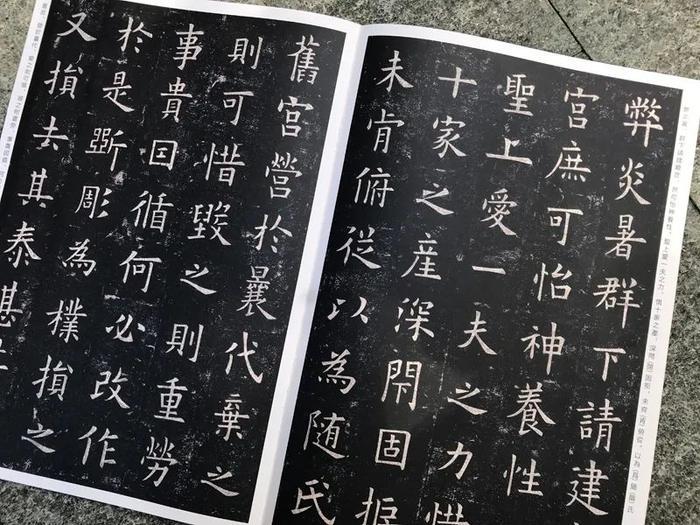 弊炎暑群下請建
宮庶可怡神養性
聖上愛一夫之力惜
十家之産深閇固拒
未肯俯從以為随氏
舊宮營於曩代棄之
則可惜毀之則重勞
事貴囙循何必改作
於是斲彫為樸損之
又損去其泰甚